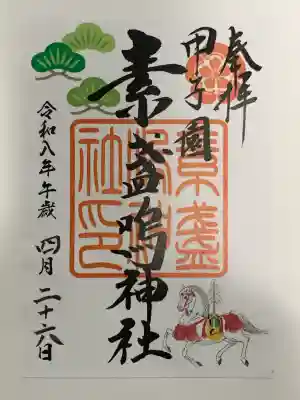 奉拝
甲子園
素盞嗚神社
素盞
嗚神
社印
令和八年午歳 四月 二十六日